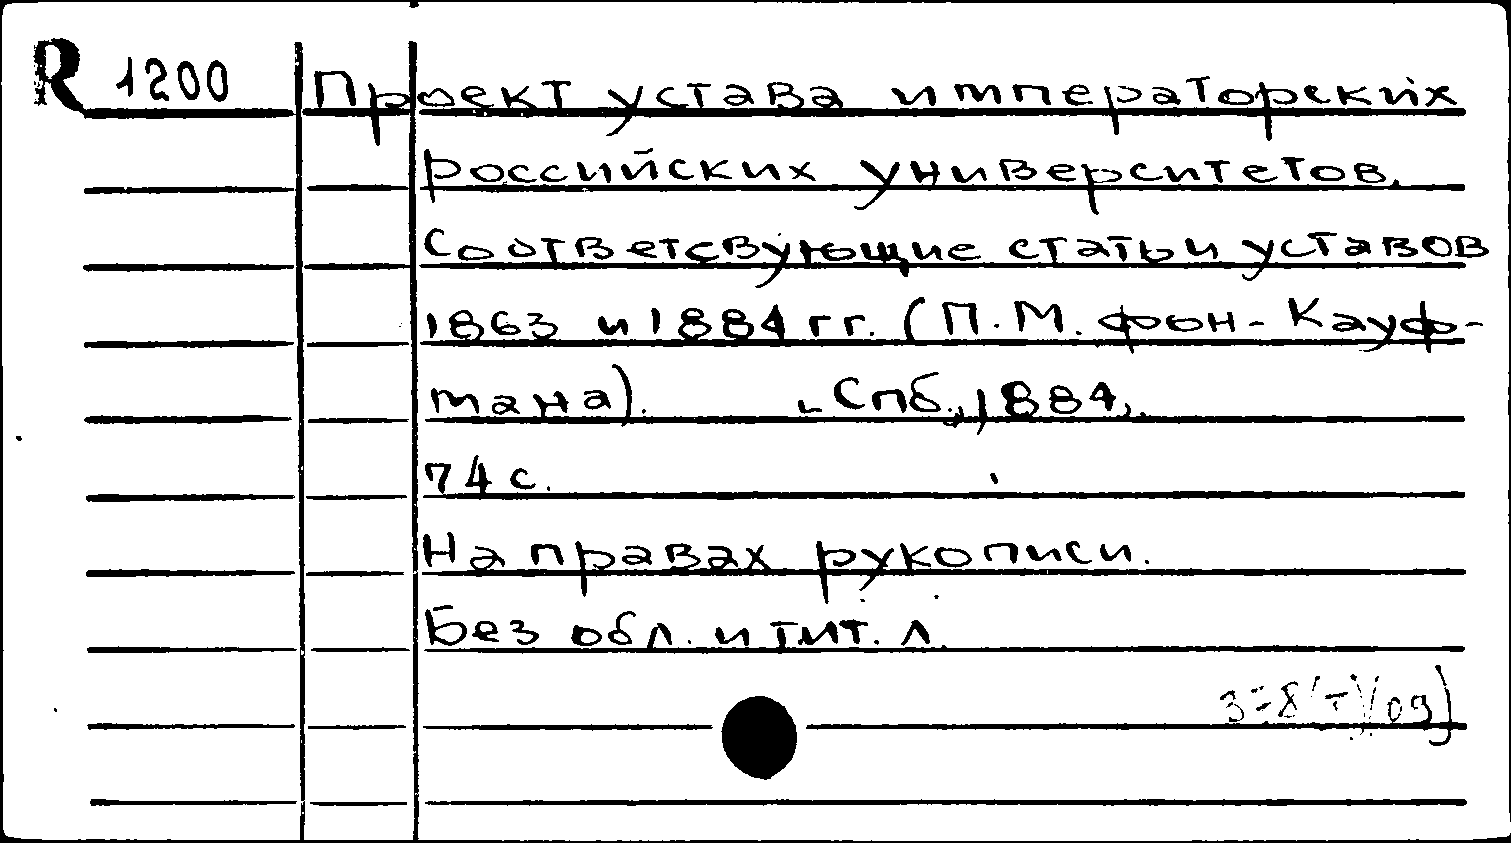 R 1200 Проект устава императорских
российских университетов.
Соответсвующие статьи уставов
1863 и 1884 гг. (П.М. фон-Кауф-
мана). Спб., 1884,
74 с.
На правах рукописи.
Без обл. и тит. л.